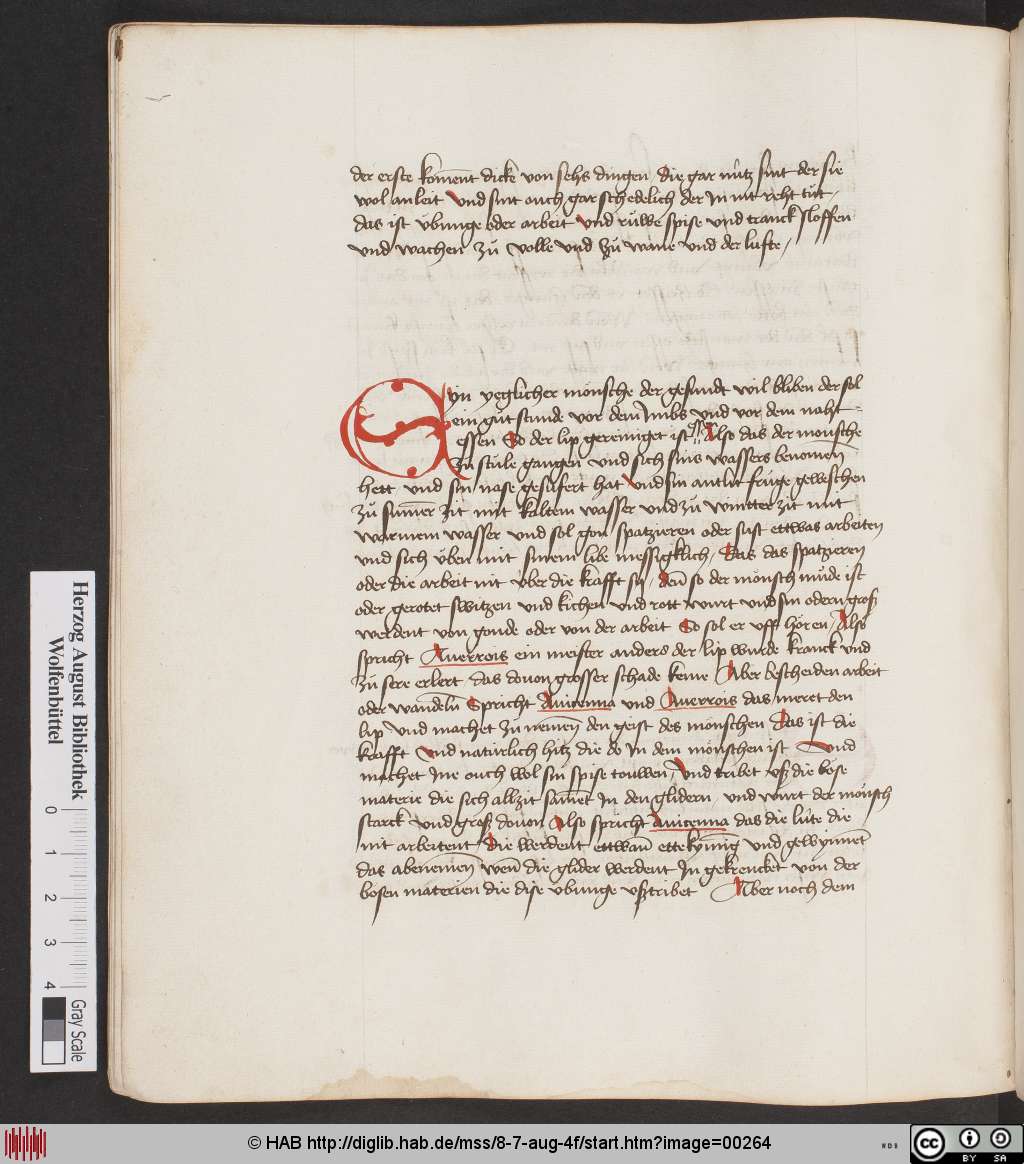 der erste koment dicke von sehs dingen die gar nütz sint der sie
wol anleit Und sint ouch gar schedelich der In nit reht tüt
das ist übunge oder arbeit und rüwe spise und tranck sloffen
und wachen zü volle und zü wane und der lufte /
Eyn yeglicher mönsche der gesundt wil bliben der sol
ein güt stunde vor dem Imbs und vor dem naht
essen So der lip gereiniget ist Also das der monsche
zü stüle gangen und sich sins wassers benomen
hett und sin nase gesüfert hat und sin antlit früge geweschen
zü sumer zit mit kaltem wasser und zü wintter zit mit
warmem wasser und sol gon spatzieren oder sust ettwas arbeiten
und sich üben mit sinem libe messigklich / Das das spatzieren
oder die arbeit nit über die krafft sy / den so der mönsch müde ist
oder gerotet switzen und kichen und rott wurt und sin odern groß
werdent von gonde oder von der arbeit So sol er uff hören / Also
spricht Auerrois ein meister anders der lip wurde kranck und
zü sere erlert das douon grosser schade keme Aber bescheiden arbeit
oder wandeln Spricht Auicenna und Auerrois das meret den
lip und machet zü nemen den geist des mönschen Das ist die
krafft und natürlich hitz die do In dem mönschen ist Und
machet Ine ouch wol sin spise töuwen / Und tribet uß die böse
materie die sich allzit samet In den glidern und wurt der mönsch
starck und groß douon Also spricht Auicenna das die lüte die
nit arbeitent Die werdent ettwan und gewynnet
das abenemen wen die glider werdent In gekrencket von der
bosen materien die dise übunge ußtribet Aber noch dem
Herzog August Bibliothek
Wolfenbüttel
0 1 2 3 4
Gray Scale
© HAB http://diglib.hab.de/mss/8-7-aug-4f/start.htm?image=00264
WDB
cc BY SA